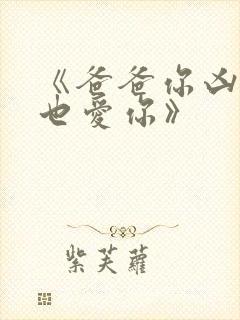 《爸爸你凶
也愛你》
紫芙蘿